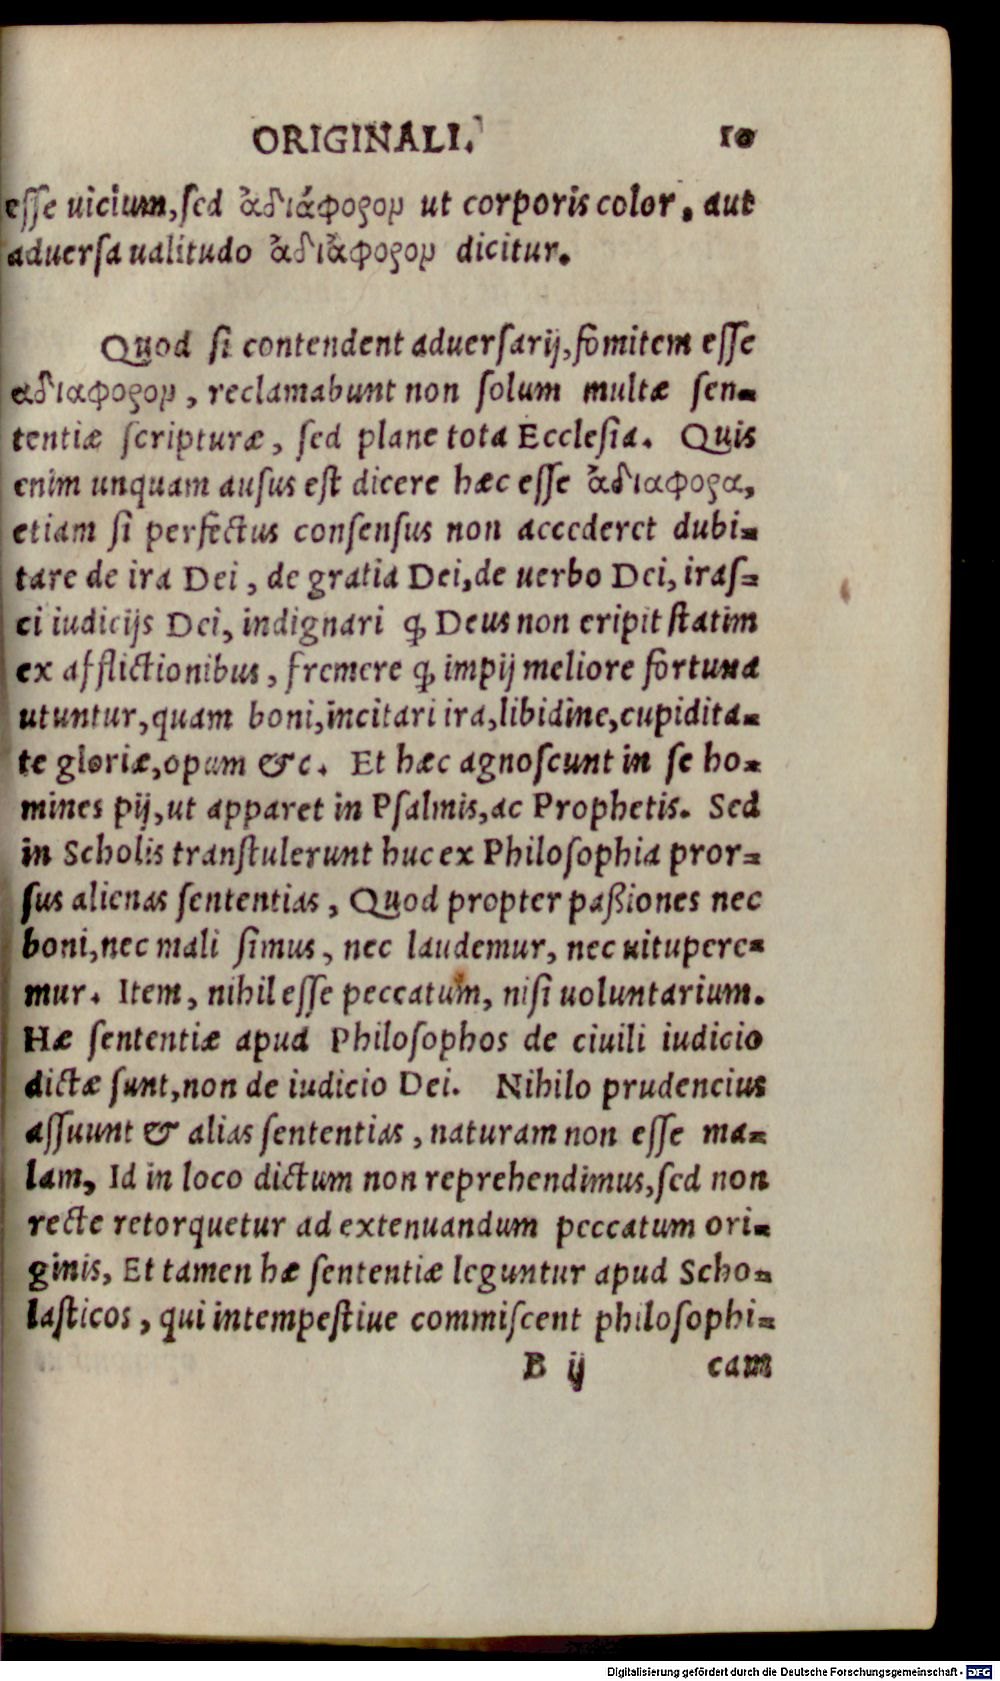 ORIGINALI. 10
esse uicium, sed ἀδιάφορον ut corporis color, aut
aduersa ualitudo ἀδιάφορον dicitur.
Quod si contendent aduersarij, fomitem esse
αδιαφορον, reclamabunt non solum multæ sen-
tentiæ scripturæ, sed plane tota Ecclesia. Quis
enim unquam ausus est dicere hæc esse ἀδιαφορα,
etiam si perfectus consensus non accederet dubi-
tare de ira Dei, de gratia Dei, de uerbo Dei, iras-
ci iudicijs Dei, indignari ꝙ Deus non eripit statim
ex afflictionibus, fremere ꝙ impij meliore fortuna
utuntur, quam boni, incitari ira, libidine, cupidita-
te gloriæ, opum &c. Et hæc agnoscunt in se ho-
mines pij, ut apparet in Psalmis, ac Prophetis. Sed
in Scholis transtulerunt huc ex Philosophia pror-
sus alienas sententias, Quod propter paßiones nec
boni, nec mali simus, nec laudemur, nec uitupere-
mur. Item, nihil esse peccatum, nisi uoluntarium.
Hæ sententiæ apud Philosophos de ciuili iudicio
dictæ sunt, non de iudicio Dei. Nihilo prudencius
assuunt & alias sententias, naturam non esse ma-
lam, Id in loco dictum non reprehendimus, sed non
recte retorquetur ad extenuandum peccatum ori-
ginis, Et tamen hæ sententiæ leguntur apud Scho-
lasticos, qui intempestiue commiscent philosophi-
B ij cam
Digitalisierung gefördert durch die Deutsche Forschungsgemeinschaft - DFG